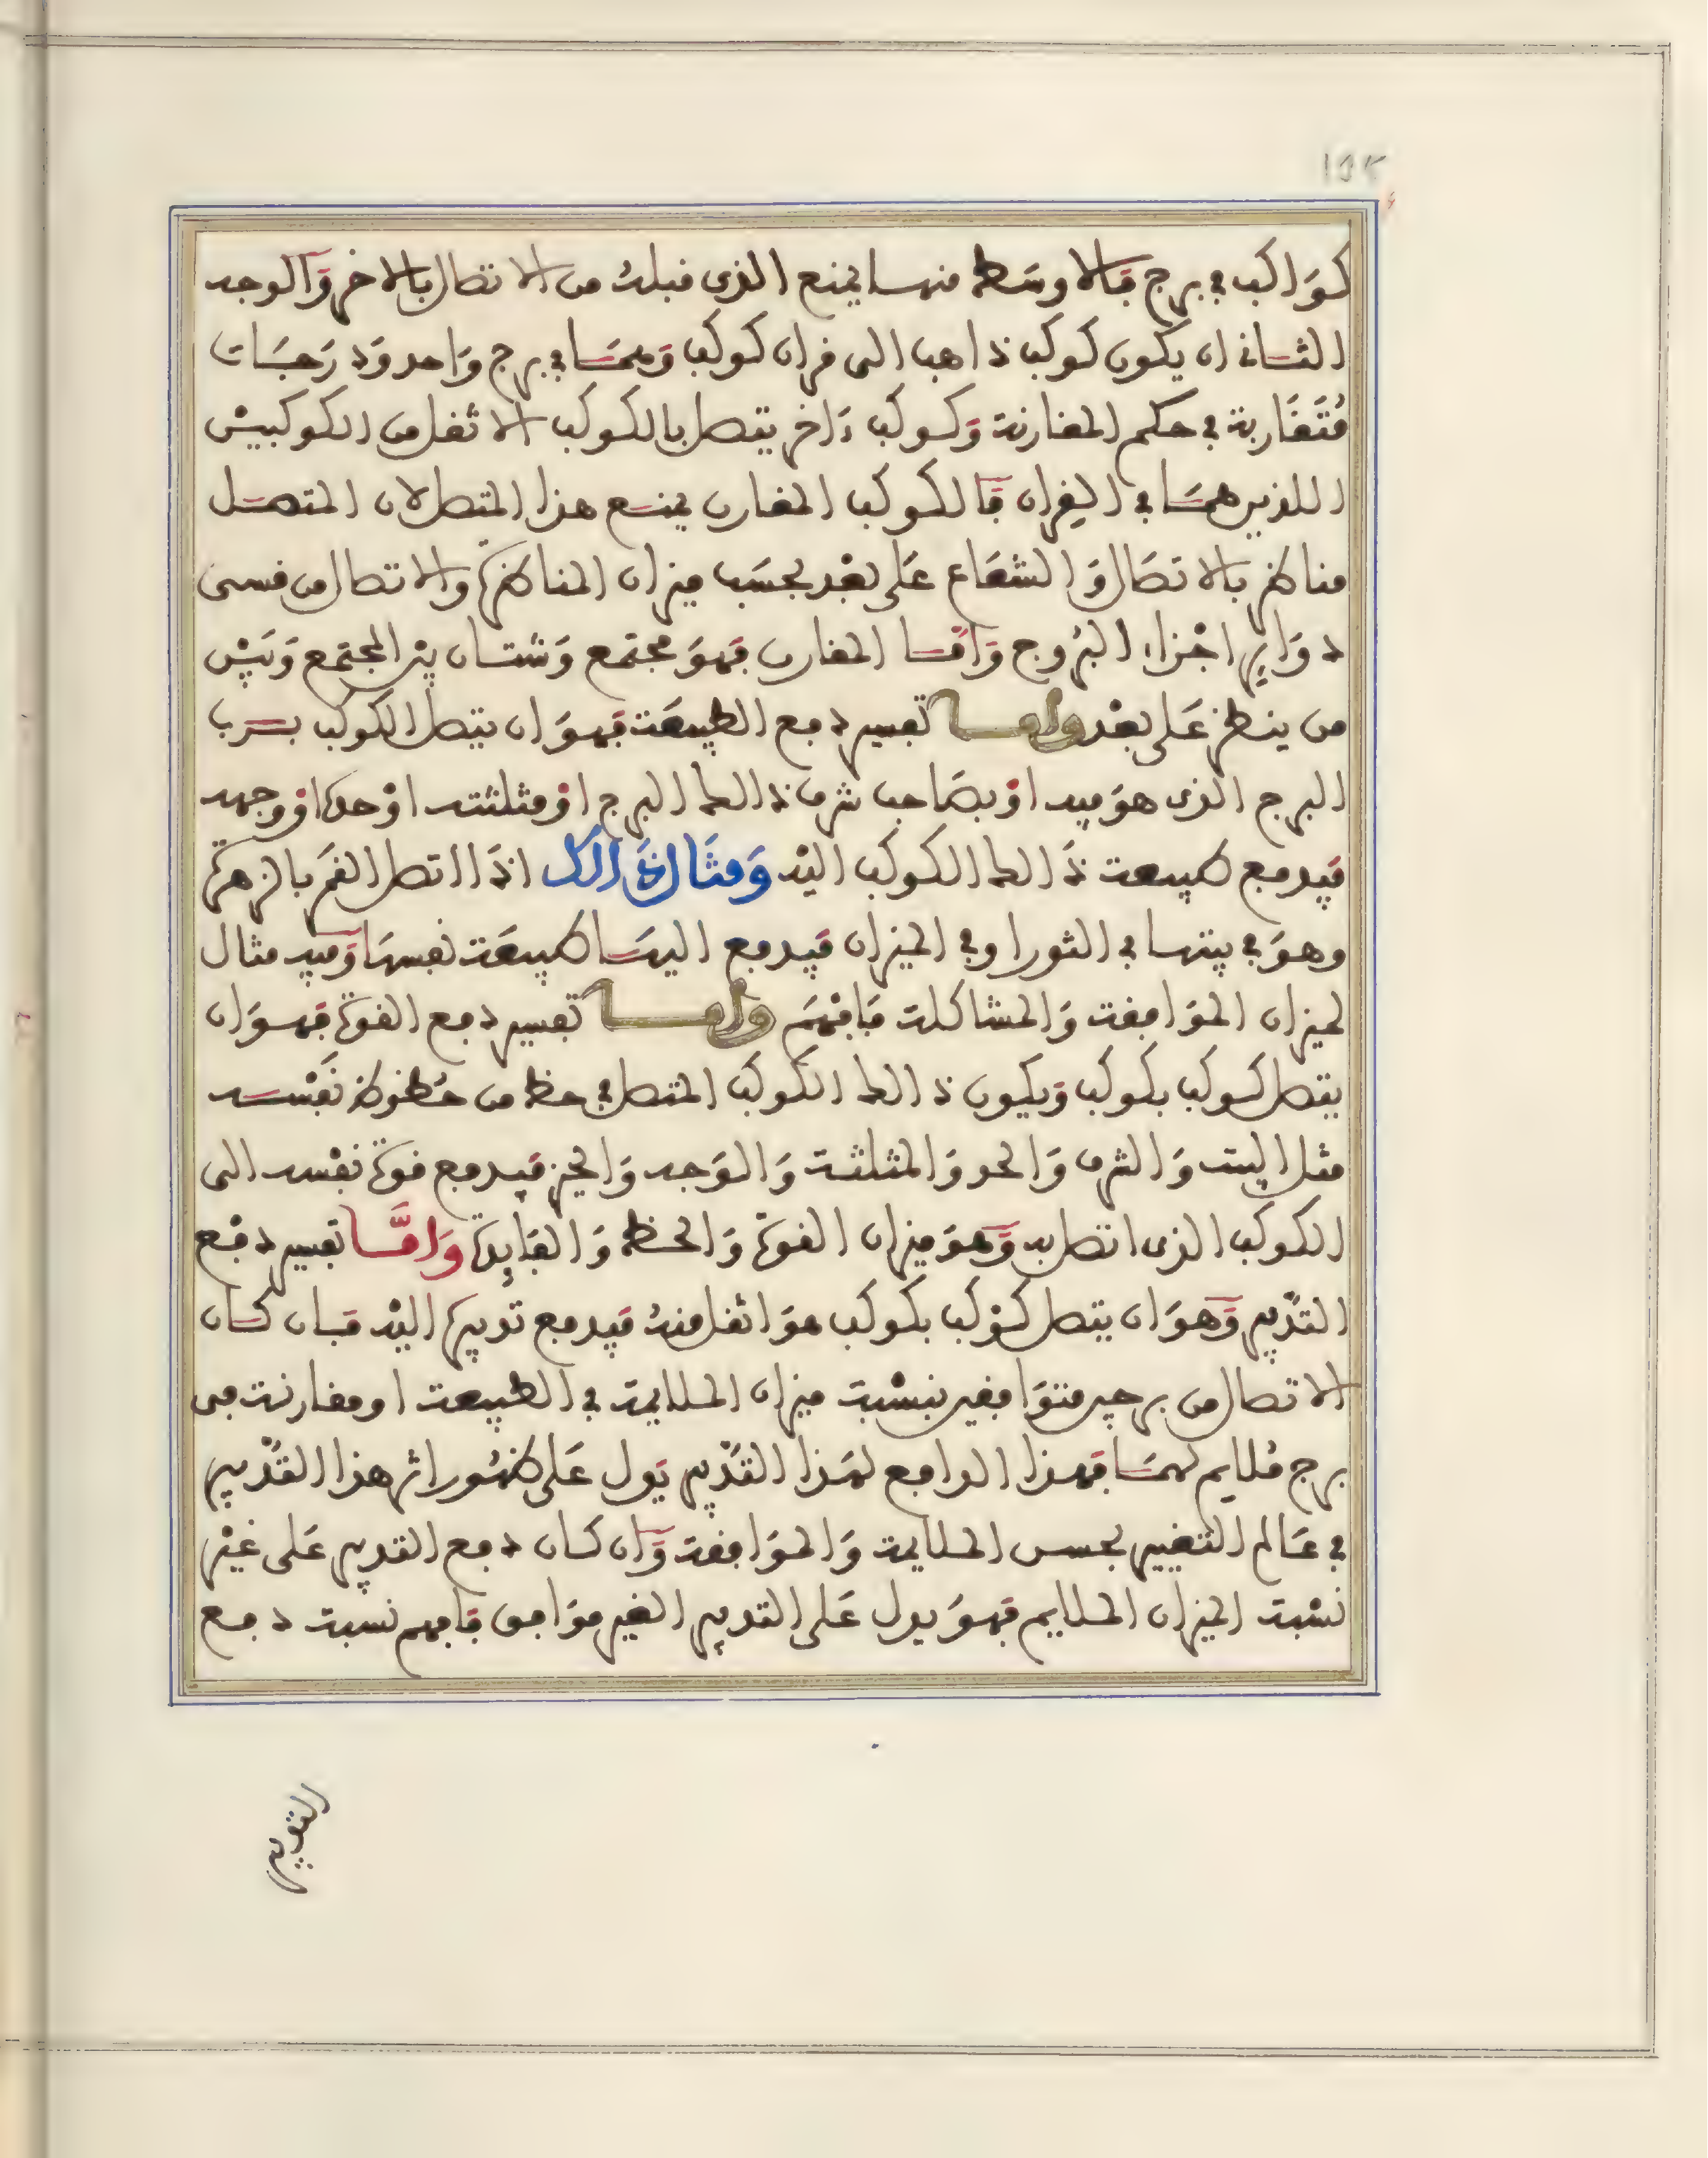 ١٥٢
كواكب في برج فالاوسط منهما يمنع الذي قبله من الاتصال بالاخر والوجه
الثاني ان يكون كوكب ذاهب الى قران كوكب وهما في برج واحد ودرجات
متقاربة في حكم المقارنة وكوكب ءاخر يتصل بالكوكب الاثقل من الكوكبين
اللذين هما في القران فالكوكب المقارن يمنع هذا المتصل لان المتصل
مناظر بالاتصال والشعاع على بعد بحسب ميزان المناظرة والاتصال من قسي
دواير اجزاء البروج واما المقارن فهو مجتمع وشتان بين المجتمع وبين
من ينظر على بعد واما تفسير دفع الطبيعة فهو ان يتصل الكوكب برب
البرج الذي هو فيه او بصاحب شرف ذالك البرج او مثلثته او حده او وجهه
فيدفع طبيعة ذالك الكوكب اليه ومثال ذالك اذا اتصل القمر بالزهرة
وهو في بيتها في الثور او في الميزان فيدفع اليها طبيعة نفسها وفيه مثال
لميزان الموافقة والمشاكلة فافهم واما تفسير دفع القوة فهو ان
يتصل كوكب بكوكب ويكون ذالك الكوكب المتصل في حظ من حظوظ نفسه
مثل البيت والشرف والحد والمثلثة والوجه والحيز فيدفع قوة نفسه الى
الكوكب الذي اتصل به وهو ميزان القوة والحظ والفايدة واما تفسير دفع
التدبير وهو ان يتصل كوكب بكوكب هو اثقل منه فيدفع تدبيره اليه فان كان
الاتصال من برجين متوافقين بنسبة ميزان الملايمة في الطبيعة او مقارنة في
برج ملايم لهما فهذا الدافع لهذا التدبير يدل على ظهور اثر هذا التدبير
في عالم التغيير بحسن الملايمة والموافقة وان كان دفع التدبير على غير
نسبة الميزان الملايم فهو يدل على التدبير الغير موافق فافهم نسبة دفع
التدبير